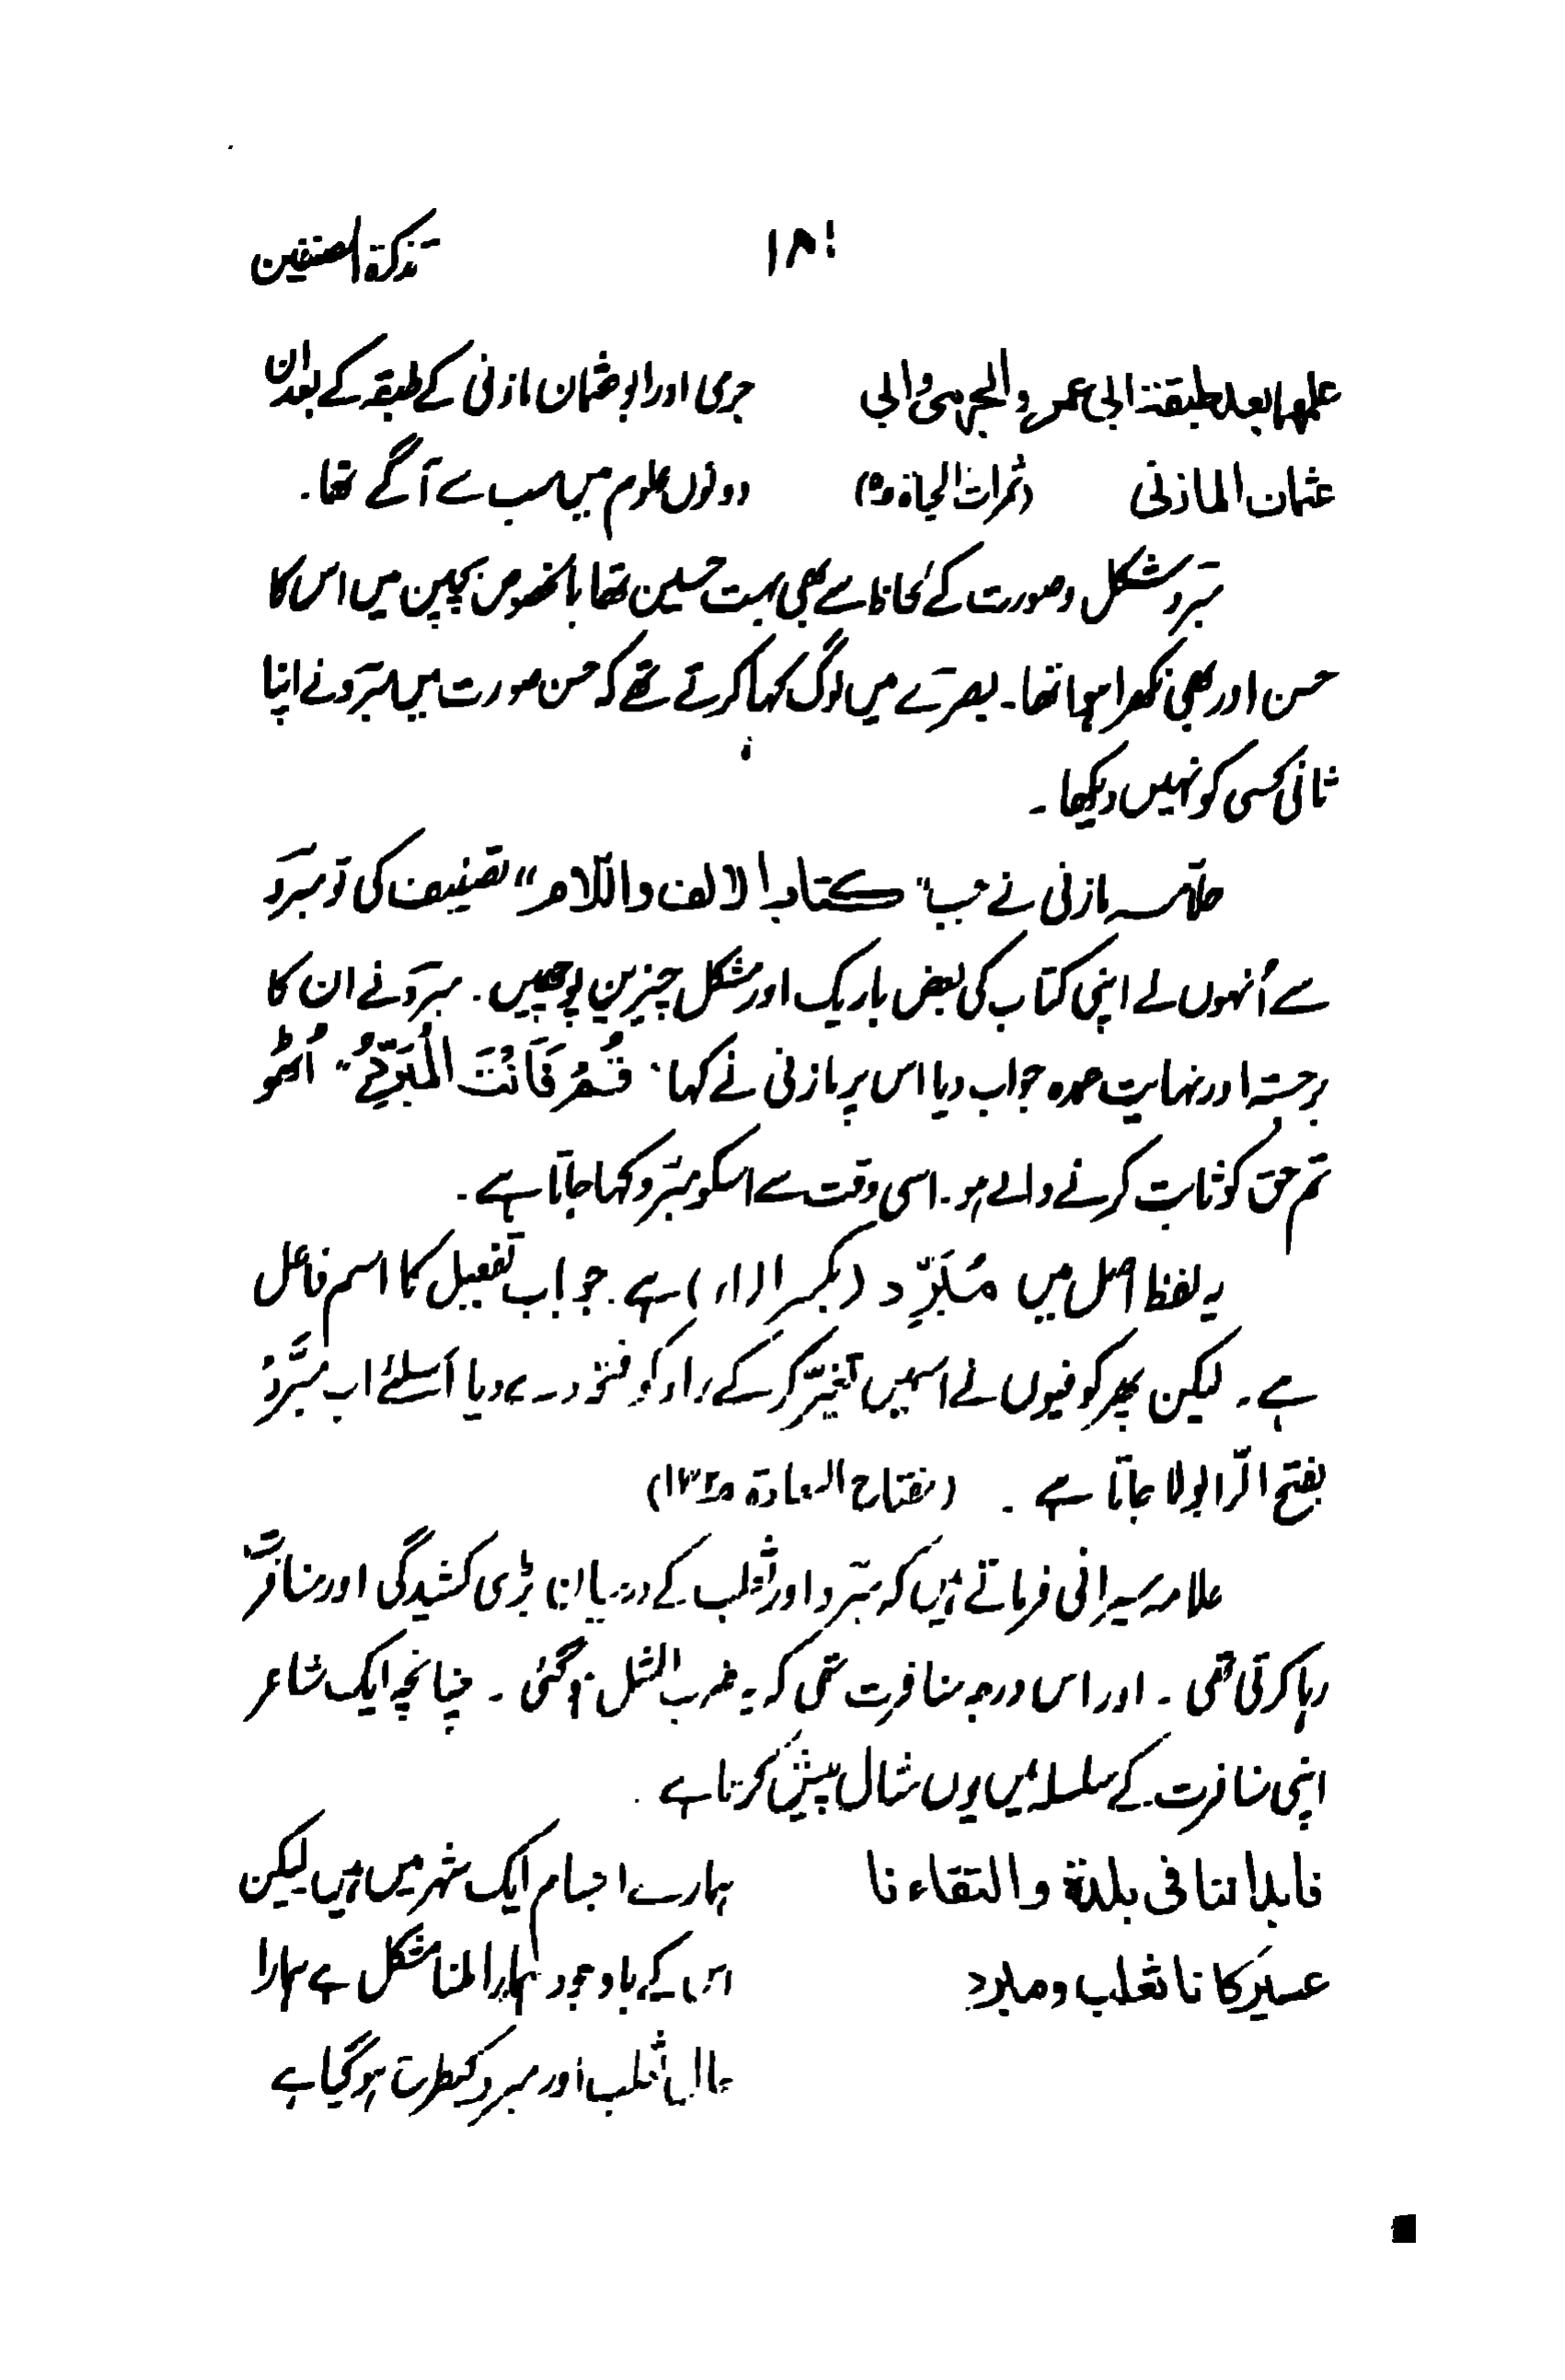 تذکرۃ المصنفین ۱۸۱
علمها بعد طبقة ابی عمر والجرمی وابی جرمی اور ابو عثمان مازنی کے طبقہ کے بعد ان
عثمان المازنی (ثمرات الحیاۃ) دونوں علوم میں سب سے آگے تھا۔
مبرد شکل وصورت کے لحاظ سے بھی بہت حسین تھا بالخصوص بچپن میں اس کا
حسن اور بھی نکھرا ہوا تھا۔ بصرے میں لوگ کہا کرتے تھے کہ حسن صورت میں مبرد نے اپنا
ثانی کسی کو نہیں دیکھا۔
علامہ مازنی نے جب "کتاب الالف واللام" تصنیف کی تو مبرد
سے اُنہوں نے اپنی کتاب کی بعض باریک اور مشکل چیزیں پوچھیں۔ مبرد نے ان کا
برجستہ اور نہایت عمدہ جواب دیا اس پر مازنی نے کہا "قُمْ فَاَنْتَ الْمُبَرِّدُ" اُٹھو
تم حق کو ثابت کرنے والے ہو۔ اسی وقت سے اسکو مبرد کہا جاتا ہے۔
یہ لفظ اصل میں مُبَرِّد (بکسر الراء) ہے۔ جو باب تفعیل کا اسم فاعل
ہے۔ لیکن پھر کوفیوں نے اسمیں تغیّر کرکے راء کو فتحہ دے دیا اسلئے اب مُبَرَّدُ
بفتح الرّا بولا جاتا ہے۔ (مفتاح السعادۃ)
علامہ سیرافی فرماتے ہیں کہ مبرد اور ثعلب کے درمیان بڑی کشیدگی اور منافرت
رہا کرتی تھی۔ اور اس درجہ منافرت تھی کہ یہ ضرب المثل ہو گئی۔ چنانچہ ایک شاعر
اپنی منافرت کے سلسلہ میں یوں مثال پیش کرتا ہے۔
فابداننا فی بلدة والتقاءنا ہمارے اجسام ایک شہر میں ہیں لیکن
عسیر کانا ثعلب ومبرد اس کے باوجود ہمارا ملنا مشکل ہے ہمارا
حال ثعلب اور مبرد کیطرح ہو گیا ہے